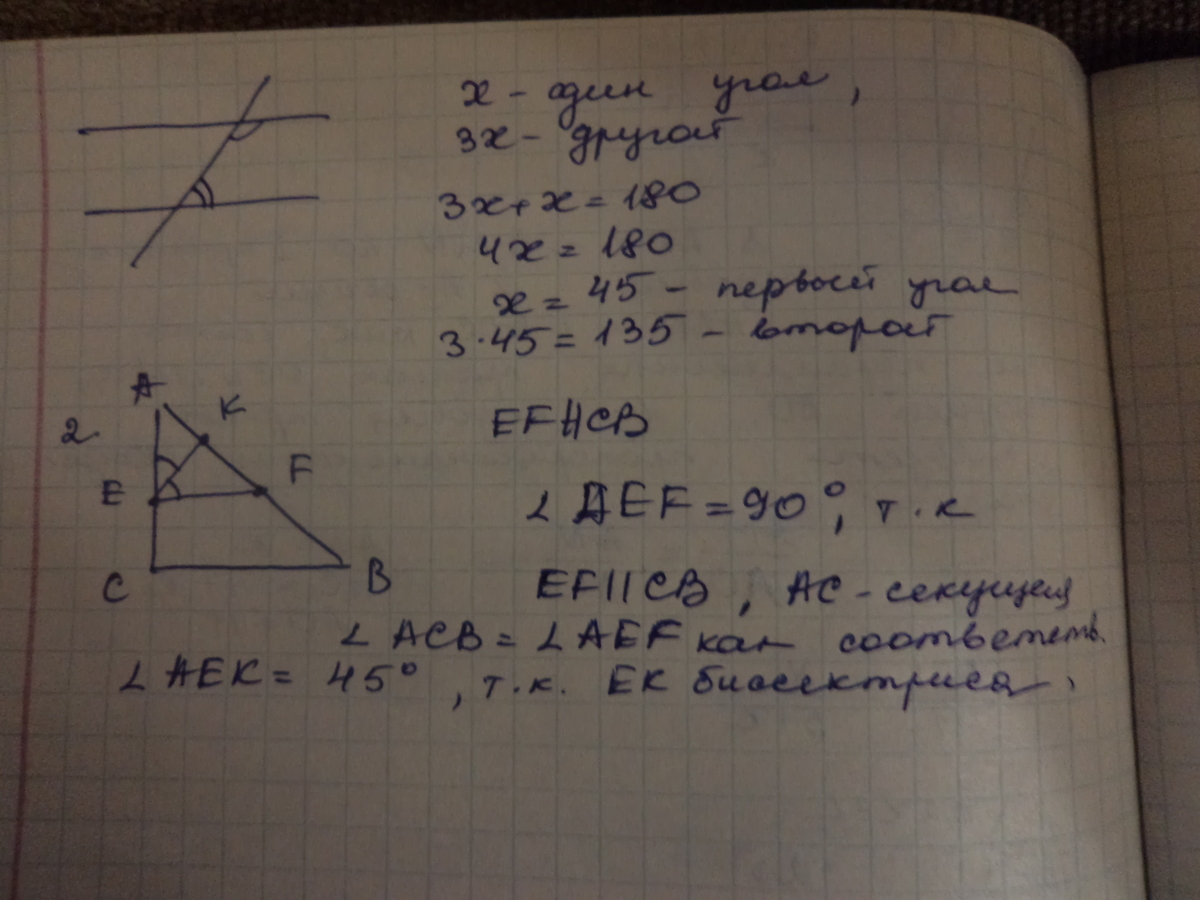 x - один угол,
3x - другой
3x + x = 180
4x = 180
x = 45 - первый угол
3·45 = 135 - второй
2.
A
K
E
F
C
B
EF∥CB
∠ AEF = 90°, т.к
EF∥CB, AC - секущая
∠ ACB = ∠ AEF как соответств.
∠ AEK = 45°, т.к. EK биссектриса.